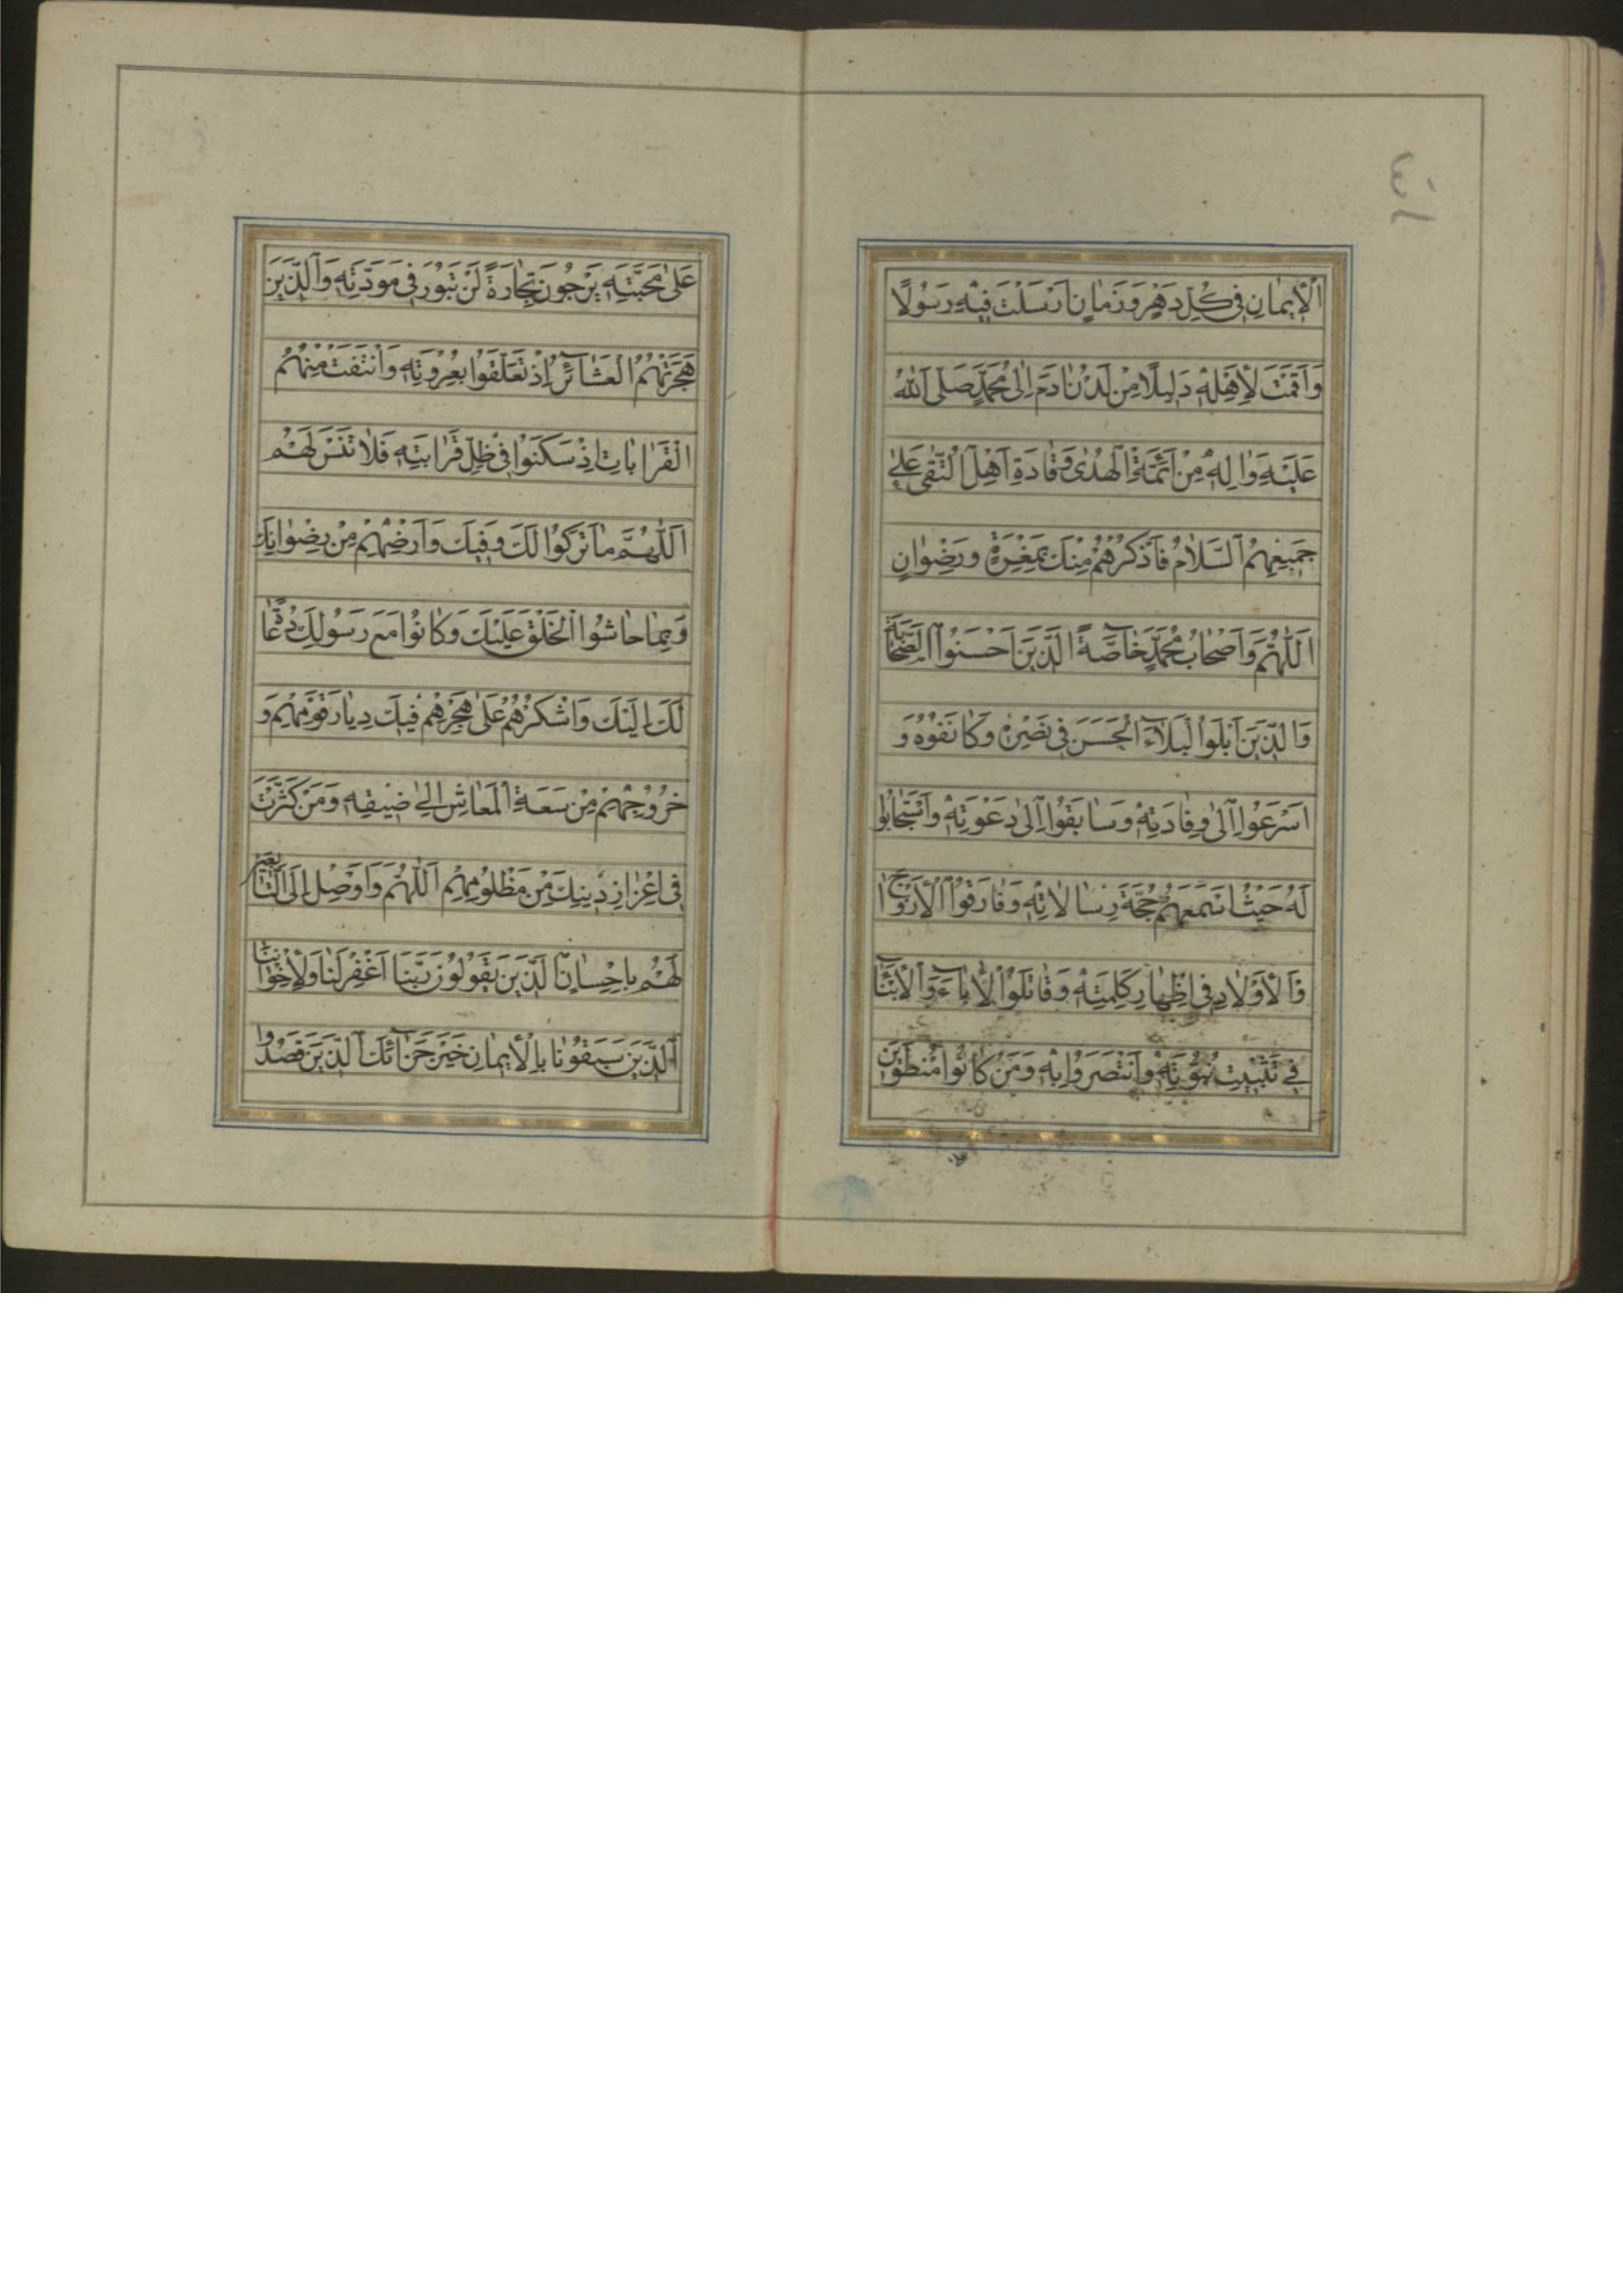 الْاِيمٰانِ فِى كُلِّ دَهْرٍ وَزَمٰانٍ اَرْسَلْتَ فِيهِ رَسُولًا
وَاَقَمْتَ لِاَهْلِهِ دَلِيلًا مِنْ لَدُنْ اٰدَمَ اِلٰى مُحَمَّدٍ صَلَّى اللّٰهُ
عَلَيْهِ وَاٰلِهِ مِنْ اَئِمَّةِ الْهُدٰى وَقٰادَةِ اَهْلِ التُّقٰى عَلٰى
جَمِيعِهِمُ السَّلٰامُ فَاذْكُرْهُمْ مِنْكَ بِمَغْفِرَةٍ وَرِضْوٰانٍ
اَللّٰهُمَّ وَاَصْحٰابُ مُحَمَّدٍ خٰاصَّةً الَّذِينَ اَحْسَنُوا الصَّحٰابَةَ
وَالَّذِينَ اَبْلَوُا الْبَلٰاءَ الْحَسَنَ فِى نَصْرِهِ وَكٰانَفُوهُ وَ
اَسْرَعُوا اِلٰى وِفٰادَتِهِ وَسٰابَقُوا اِلٰى دَعْوَتِهِ وَاسْتَجٰابُوا
لَهُ حَيْثُ اَسْمَعَهُمْ حُجَّةَ رِسٰالٰاتِهِ وَفٰارَقُوا الْاَزْوٰاجَ
وَالْاَوْلٰادَ فِى اِظْهٰارِ كَلِمَتِهِ وَقٰاتَلُوا الْاٰبٰاءَ وَالْاَبْنٰاءَ
فِى تَثْبِيتِ نُبُوَّتِهِ وَانْتَصَرُوا بِهِ وَمَنْ كٰانُوا مُنْطَوِينَ
عَلٰى مَحَبَّتِهِ يَرْجُونَ تِجٰارَةً لَنْ تَبُورَ فِى مَوَدَّتِهِ وَالَّذِينَ
هَجَرَتْهُمُ الْعَشٰائِرُ اِذْ تَعَلَّقُوا بِعُرْوَتِهِ وَانْتَفَتْ مِنْهُمُ
الْقَرٰابٰاتُ اِذْ سَكَنُوا فِى ظِلِّ قَرٰابَتِهِ فَلٰا تَنْسَ لَهُمُ
اَللّٰهُمَّ مٰا تَرَكُوا لَكَ وَفِيكَ وَاَرْضِهِمْ مِنْ رِضْوٰانِكَ
وَبِمٰا حٰاشُوا الْخَلْقَ عَلَيْكَ وَكٰانُوا مَعَ رَسُولِكَ دُعٰاةً
لَكَ اِلَيْكَ وَاشْكُرْهُمْ عَلٰى هَجْرِهِمْ فِيكَ دِيٰارَ قَوْمِهِمْ وَ
خُرُوجِهِمْ مِنْ سَعَةِ الْمَعٰاشِ اِلٰى ضِيقِهِ وَمَنْ كَثَّرْتَ
فِى اِعْزٰازِ دِينِكَ مِنْ مَظْلُومِهِمْ اَللّٰهُمَّ وَاَوْصِلْ اِلَى التّٰابِعِينَ
لَهُمْ بِاِحْسٰانٍ الَّذِينَ يَقُولُونَ رَبَّنَا اغْفِرْ لَنٰا وَلِاِخْوٰانِنَا
الَّذِينَ سَبَقُونٰا بِالْاِيمٰانِ خَيْرَ جَزٰائِكَ الَّذِينَ قَصَدُوا